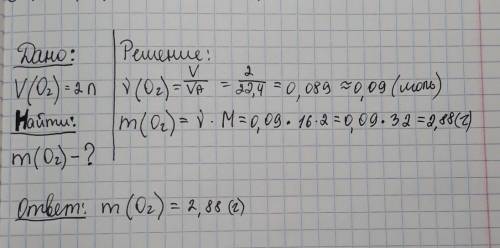 Дано:
V(O₂)=2л
Найти:
m(O₂)-?
Решение:
ν(O₂)=V/VA=2/22,4=0,089≈0,09(моль)
m(O₂)=ν·M=0,09·16·2=0,09·32=2,88(г)
Ответ: m(O₂)=2,88(г)